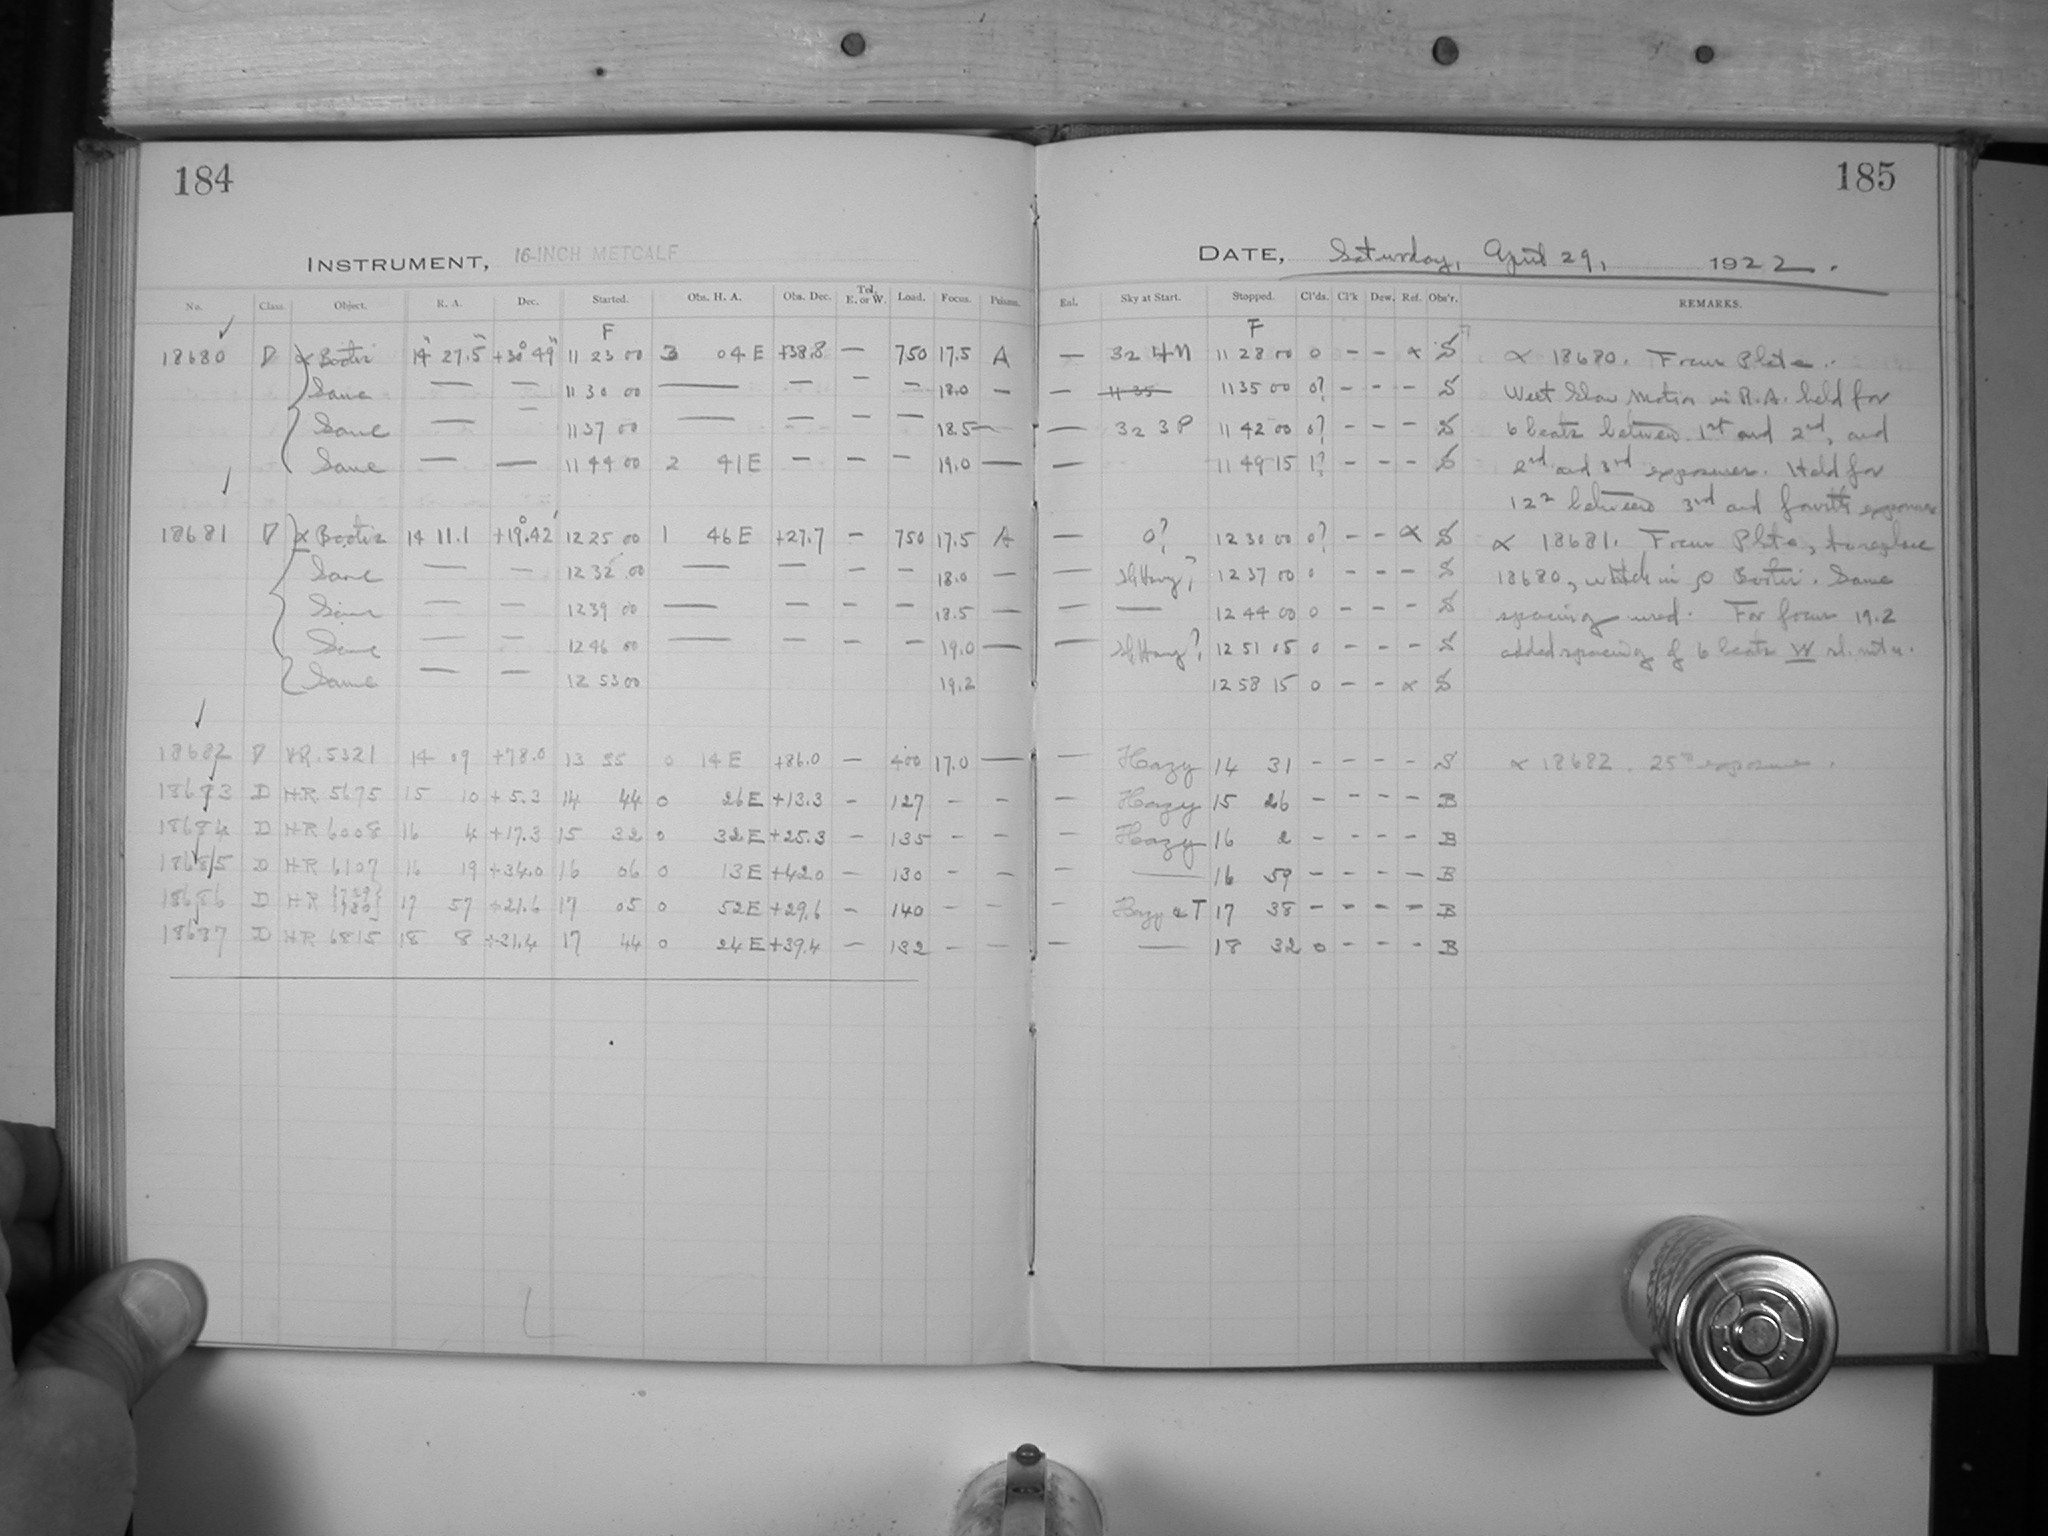 184
185
INSTRUMENT, 16-INCH METCALF
DATE, Saturday, April 29, 1922.
No. Class. Object. R. A. Dec. Started. Obs. H. A. Obs. Dec. Tel. E. or W. Load. Focus. Prisms. Eal. Sky at Start. Stopped. Cl'ds. Cl'k Dew. Ref. Obs'r. REMARKS.
F F
18680 D α Bootis 14h 27.5m +30° 49' 11 23 00 3 04 E +38.8 — 750 17.5 A — 32 4 N 11 28 00 0 – – α S α 18680. Focus Plate.
Same — — 11 30 00 — — — — 18.0 — — 11 35 11 35 00 0? – – – S West Slow Motion in R.A. held for
Same — — 11 37 00 — — — — 18.5 — — 32 3 P 11 42 00 0? – – – S 6 beats between 1st and 2nd, and
Same — — 11 44 00 2 41 E — — — 19.0 — — 11 49 15 1? – – – S 2nd and 3rd exposures. Held for
12 between 3rd and fourth exposure
18681 D α Bootis 14 11.1 +19° 42' 12 25 00 1 46 E +27.7 — 750 17.5 A — 0? 12 30 00 0? – – α S α 18681. Focus Plate, to replace
Same — — 12 32 00 — — — — 18.0 — — Sl Hazy? 12 37 00 0 – – – S 18680, which is ρ Bootis. Same
Same — — 12 39 00 — — — — 18.5 — — — 12 44 00 0 – – – S spacing used. For focus 19.2
Same — — 12 46 00 — — — — 19.0 — — Sl Hazy? 12 51 05 0 – – – S added spacing of 6 beats W sl. mtn.
Same — — 12 53 00 19.2 12 58 15 0 – – α S
18682 D HR. 5321 14 09 +78.0 13 55 0 14 E +86.0 — 400 17.0 — — Hazy 14 31 – – – – S α 18682. 25m exposure.
18683 D HR. 5675 15 10 +5.3 14 44 0 26 E +13.3 – 127 – – — Hazy 15 26 – – – – B
18684 D HR 6008 16 4 +17.3 15 32 0 32 E +25.3 – 135 – – — Hazy 16 2 – – – – B
18685 D HR 6107 16 19 +34.0 16 06 0 13 E +42.0 – 130 – – — — 16 59 – – – – B
18686 D HR 17 57 +21.6 17 05 0 52 E +29.6 – 140 – – — Hazy & T 17 38 – – – – B
18687 D HR 6815 18 8 +31.4 17 44 0 24 E +39.4 – 132 – – — — 18 32 0 – – – B